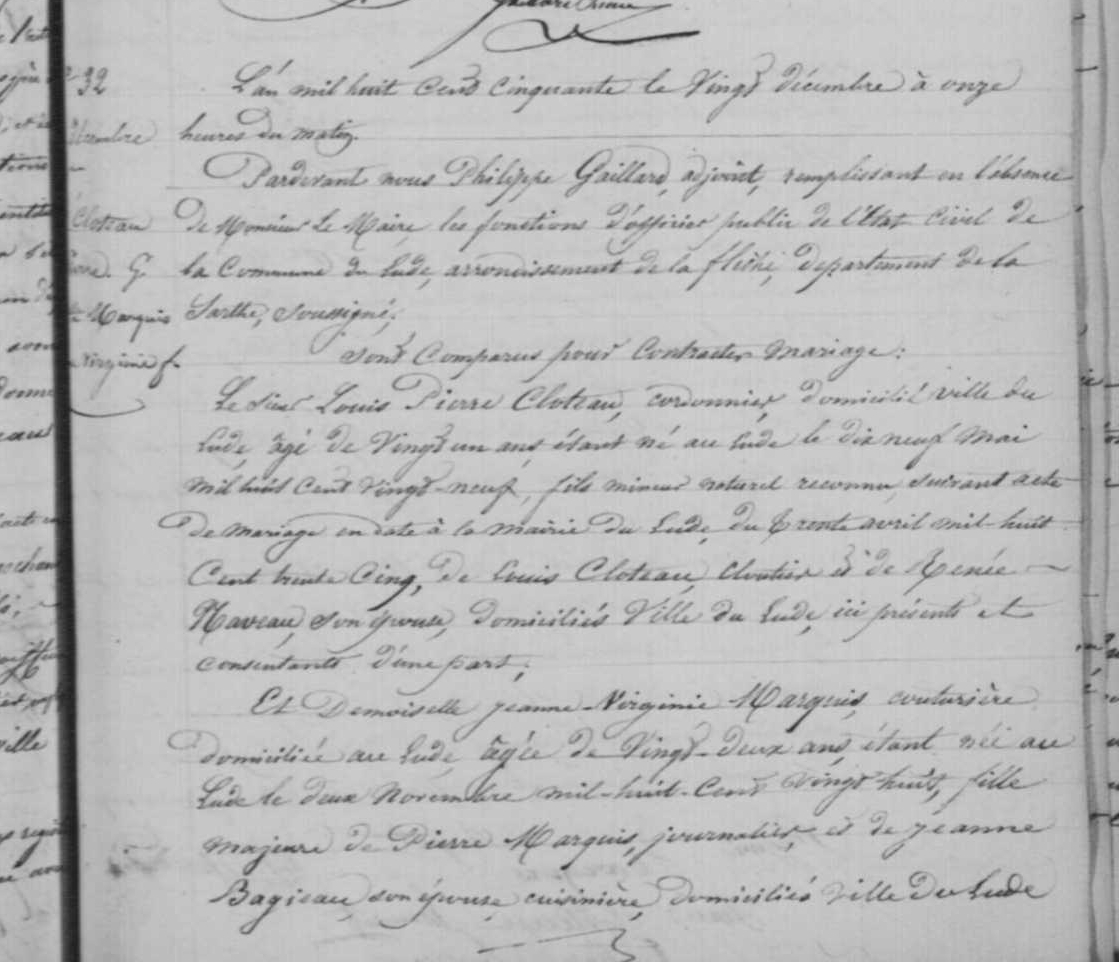 32
L'an mil huit cent cinquante le Vingt décembre à onze
heures du matin.
Pardevant nous Philippe Gaillard, adjoint, remplissant en l'absence
de Monsieur Le Maire les fonctions d'officier public de l'Etat Civil de
la Commune du Lude, arrondissement de la flèche, departement de la
Sarthe, soussigné;
sont Comparus pour Contracter mariage:
Le sieur Louis Pierre Cloteau, cordonnier, domicilié ville du
Lude, âgé de Vingt un ans étant né au Lude le dix neuf Mai
mil huit Cent Vingt-neuf, fils mineur naturel reconnu, suivant acte
de mariage en date à la mairie du Lude, du trente avril mil-huit
Cent trente Cinq, de Louis Cloteau, cloutier et de Renée
Naveau, son épouse, domiciliés Ville du Lude, ici présents et
consentants d'une part;
Et Demoiselle Jeanne-Virginie Marquis, couturière
domiciliée au Lude, âgée de Vingt-deux ans, étant née au
Lude le deux Novembre mil-huit-Cent Vingt huit, fille
majeure de Pierre Marquis, journalier, et de Jeanne
Bagieau, son épouse, cuisinière, domiciliés Ville du Lude
décembre
Cloteau
G.
Marquis
Virginie f.
ville